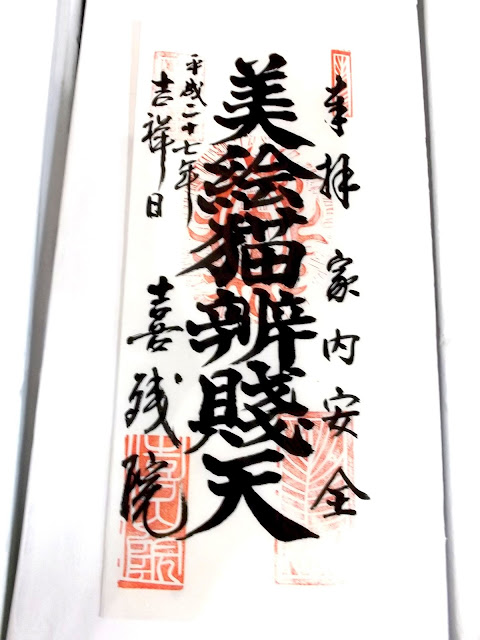 奉拝 家内安全
美絵猫辨賤天
平成二十七年
吉祥日
喜残院